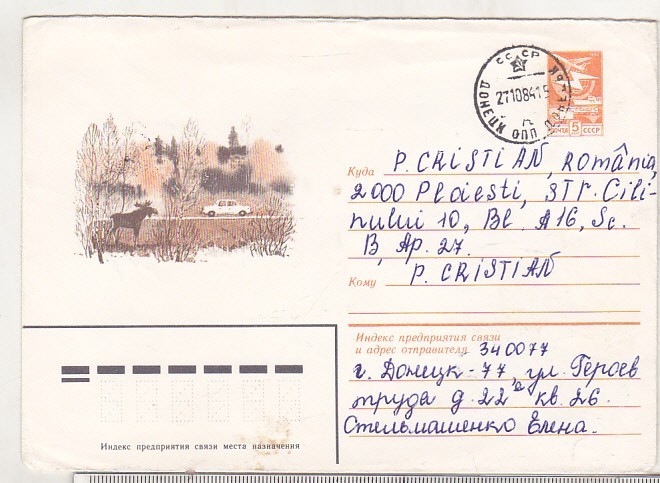 СССР
ДОНЕЦК ОПП
27108415
ПОЧТА 5 СССР
Куда P. CRISTIAN, România,
2000 Ploiesti, STr. Cili-
nului 10, Bl. A16, Sc.
B, Ap. 27.
Кому P. CRISTIAN
Индекс предприятия связи
и адрес отправителя 340077
г. Донецк-77, ул. Героев
труда д. 22а кв. 26.
Стельмашенко Елена.
Индекс предприятия связи места назначения